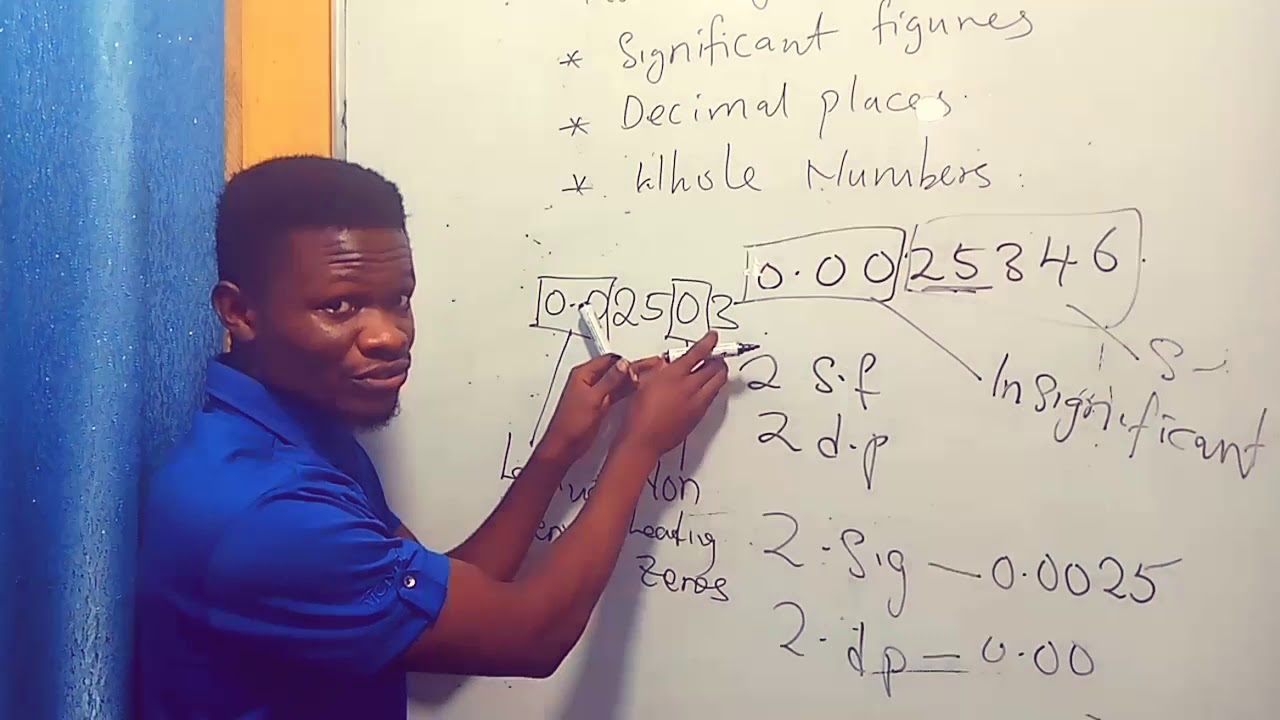 * Significant figures
* Decimal places.
* Whole Numbers :
0.00 25346
0.02503
2 S.f
2 d.p
S
Insignificant
Non
Leadig
Zeros
2.Sig — 0.0025
2.dp = 0.00